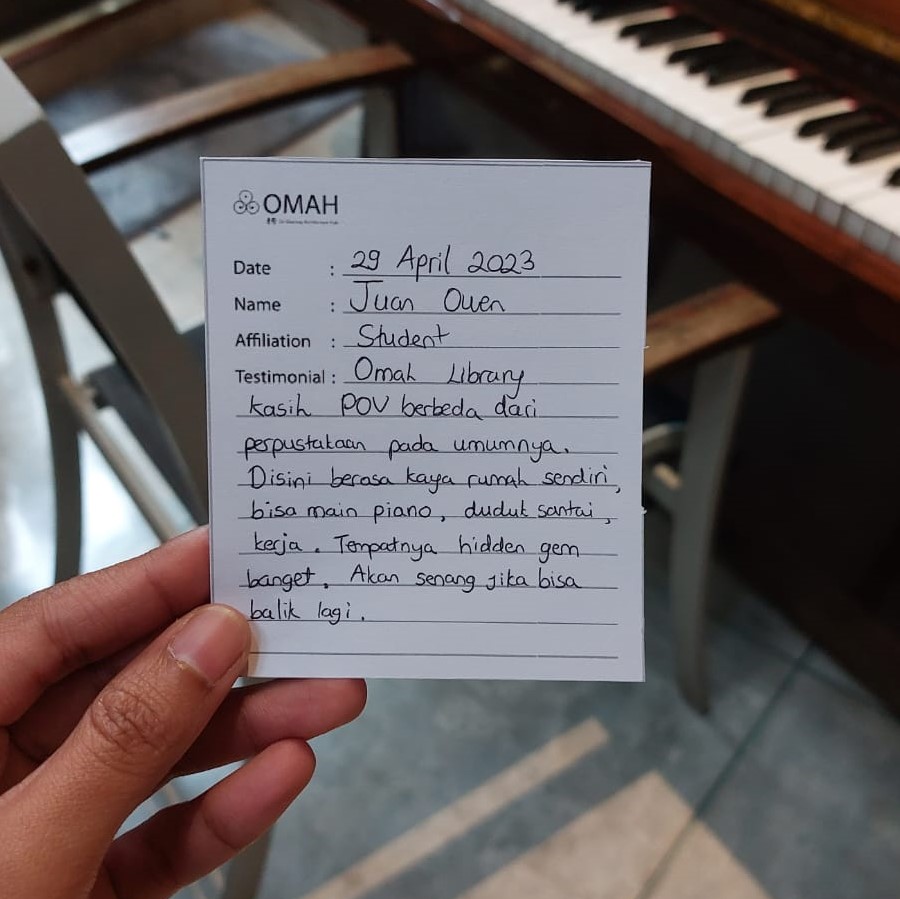 OMAH
Date : 29 April 2023
Name : Juan Owen
Affiliation : Student
Testimonial : Omah Library
kasih POV berbeda dari
perpustakaan pada umumnya.
Disini berasa kaya rumah sendiri,
bisa main piano, duduk santai,
kerja. Tempatnya hidden gem
banget. Akan senang jika bisa
balik lagi.